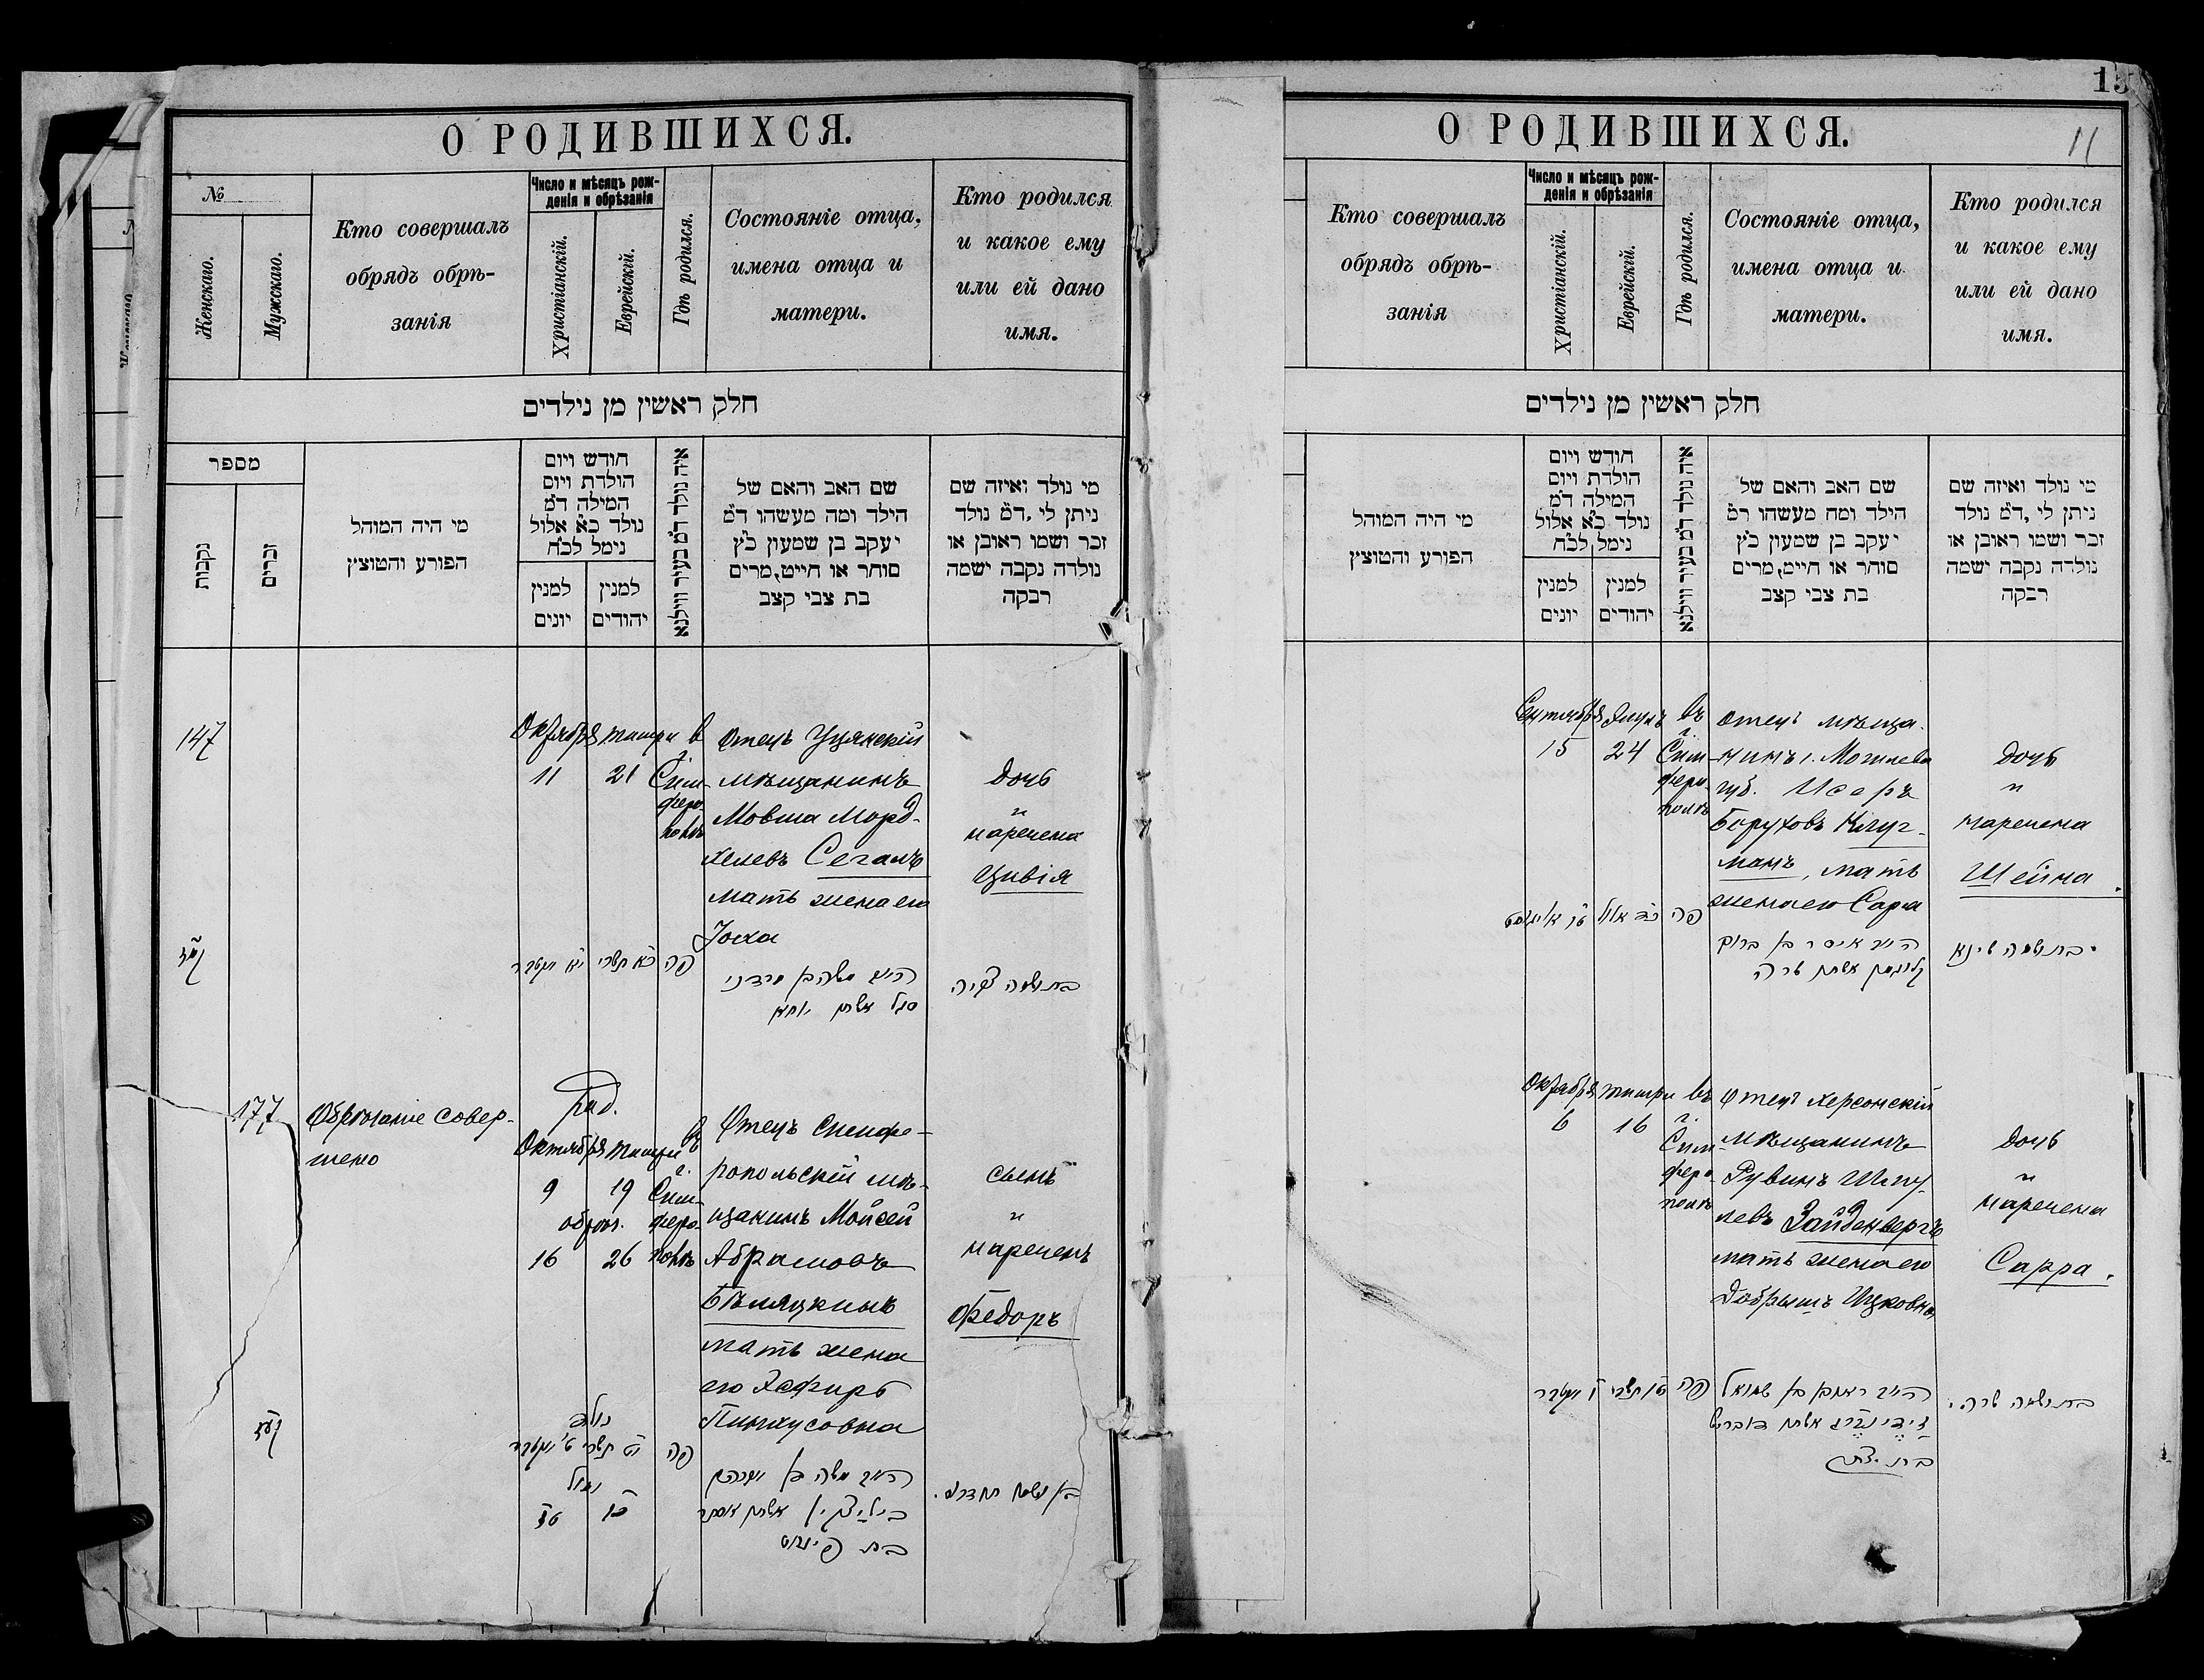 О РОДИВШИХСЯ.
№
Женскаго.
Мужскаго.
Кто совершалъ
обрядъ обрѣ-
занія
Число и мѣсяцъ рож-
денія и обрѣзанія
Христіанскій.
Еврейскій.
Гдѣ родился.
Состояніе отца,
имена отца и
матери.
Кто родился
и какое ему
или ей дано
имя.
חלק ראשין מן נילדים
מספר
נקבות
זכרים
מי היה המוהל
הפורע והמוצץ
חודש ויום
הולדת ויום
המילה ד״מ
נולד כ״א אלול
נימל לכ״ח
למנין
יונים
למנין
יהודים
איה נולד ד״מ בעיר ווילנא
שם האב והאם של
הילד ומה מעשהו ד״מ
יעקב בן שמעון כ״ץ
סוחר או חייט, מרים
בת צבי קצב
מי נולד ואיזה שם
ניתן לי, ד״מ נולד
זכר ושמו ראובן או
נולדה נקבה ישמה
רבקה
147
Октября
11
тишри
21
в
г.
Сим-
феро-
полѣ
Отецъ Уцянскій
мѣщанинъ
Мовша Морд-
хелевъ Сегалъ
мать жена его
Дочь
"
наречена
Цивія
קמז
י״א
כ״א תשרי
פה
משה בן מרדכי
סגל אשתו
בת ושמה צביה
177
Обрѣзаніе совер-
шено
Рад.
Октября
тишри
въ
г.
9
19
Сим-
обрѣз.
феро-
16
26
полѣ
Отецъ Симфе-
ропольскій мѣ-
щанинъ Мойсей
Абрамовъ
Бѣляцкинъ
мать жена
его
Пинхусовна
сынъ
"
нареченъ
Федоръ
נולד
י״ט תשרי
פה
נימול
כ״ו
ט״ז
משה בן אברהם
ביליצקין אשתו אסתר
בת פינחס
בן ושמו
О РОДИВШИХСЯ.
15
11
Кто совершалъ
обрядъ обрѣ-
занія
Число и мѣсяцъ рож-
денія и обрѣзанія
Христіанскій.
Еврейскій.
Гдѣ родился.
Состояніе отца,
имена отца и
матери.
Кто родился
и какое ему
или ей дано
имя.
חלק ראשין מן נילדים
מי היה המוהל
הפורע והמוצץ
חודש ויום
הולדת ויום
המילה ד״מ
נולד כ״א אלול
נימל לכ״ח
למנין
יונים
למנין
יהודים
איה נולד ד״מ בעיר ווילנא
שם האב והאם של
הילד ומה מעשהו ד״מ
יעקב בן שמעון כ״ץ
סוחר או חייט, מרים
בת צבי קצב
מי נולד ואיזה שם
ניתן לי, ד״מ נולד
זכר ושמו ראובן או
נולדה נקבה ישמה
רבקה
Сентября
15
24
въ
г.
Сим-
феро-
полѣ
Отецъ мѣща-
нинъ г. Могилева
губ. Исеръ
Боруховъ Клуг-
манъ, мать
жена его Сара
Дочь
"
наречена
Шейна.
פה
איסר בן ברוך
קלוגמן אשתו שרה
בת ושמה שינא
Октября
6
тишри
16
въ
г.
Сим-
феро-
полѣ
Отецъ Херсонскій
мѣщанинъ
Рувинъ Шму-
левъ Зайденвергъ
мать жена его
Добрышъ Ицковна
Дочь
"
наречена
Сарра.
ט״ז תשרי
פה
ראובן בן שמואל
זיידענברג אשתו דובריש
בת יצחק
בת ושמה שרה.